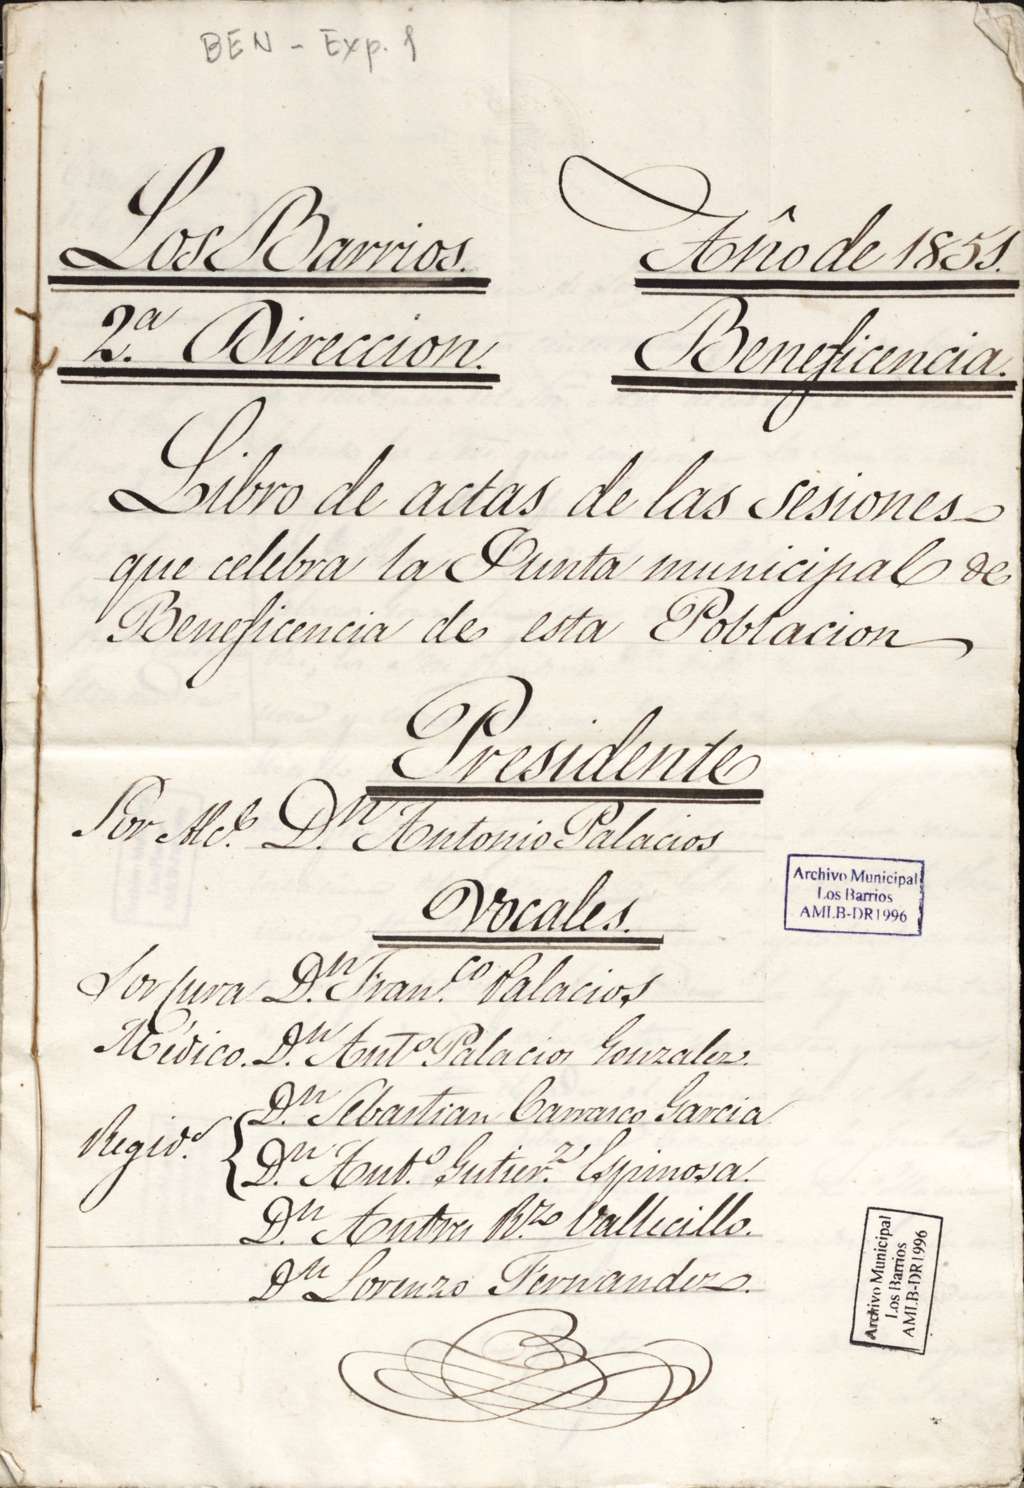 BEN - Exp. 1
Los Barrios. Año de 1851.
2.ª Direccion. Beneficencia.
Libro de actas de las sesiones
que celebra la Junta municipal de
Beneficencia de esta Poblacion
Presidente
Sor Alc.e D.n Antonio Palacios
Vocales.
Sor Cura D.n Fran.co Palacios
Médico. D.n Ant.o Palacios Gonzalez.
D.n Sebastian Carrasco Garcia
Regid.s D.n Ant.o Gutier.z Espinosa.
D.n Andres R.z Vallecillo.
D.n Lorenzo Fernandez.
Archivo Municipal
Los Barrios
AMLB-DR1996
Archivo Municipal
Los Barrios
AMLB-DR1996